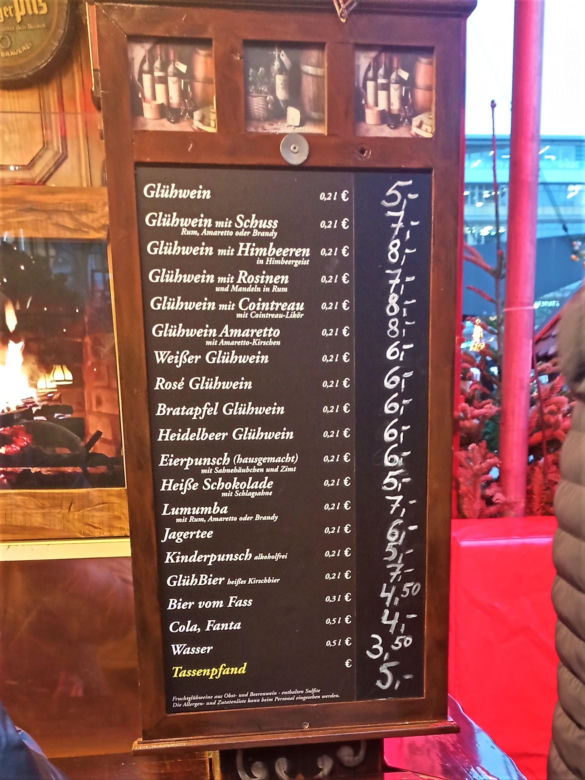 erPils
Glühwein 0,2 l € 5,-
Glühwein mit Schuss 0,2 l € 7,-
Rum, Amaretto oder Brandy
Glühwein mit Himbeeren 0,2 l € 8,-
in Himbeergeist
Glühwein mit Rosinen 0,2 l € 7,-
und Mandeln in Rum
Glühwein mit Cointreau 0,2 l € 8,-
mit Cointreau-Likör
Glühwein Amaretto 0,2 l € 8,-
mit Amaretto-Kirschen
Weißer Glühwein 0,2 l € 6,-
Rosé Glühwein 0,2 l € 6,-
Bratapfel Glühwein 0,2 l € 6,-
Heidelbeer Glühwein 0,2 l € 6,-
Eierpunsch (hausgemacht) 0,2 l € 6,-
mit Sahnehäubchen und Zimt
Heiße Schokolade 0,2 l € 5,-
mit Schlagsahne
Lumumba 0,2 l € 7,-
mit Rum, Amaretto oder Brandy
Jagertee 0,2 l € 6,-
Kinderpunsch alkoholfrei 0,2 l € 5,-
GlühBier heißes Kirschbier 0,2 l € 7,-
Bier vom Fass 0,3 l € 4,50
Cola, Fanta 0,5 l € 4,-
Wasser 0,5 l € 3,50
Tassenpfand € 5,-
Fruchtglühweine aus Obst- und Beerenwein - enthalten Sulfite
Die Allergen- und Zutatenliste kann beim Personal eingesehen werden.